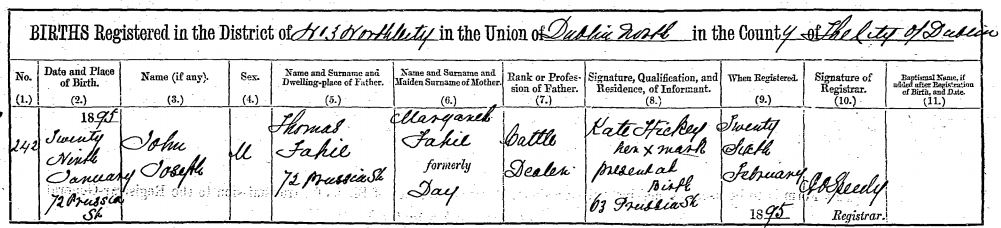 BIRTHS Registered in the District of No. 3 North City in the Union of Dublin North in the County of The City of Dublin
No. Date and Place of Birth. Name (if any). Sex. Name and Surname and Dwelling-place of Father. Name and Surname and Maiden Surname of Mother. Rank or Profession of Father. Signature, Qualification, and Residence, of Informant. When Registered. Signature of Registrar. Baptismal Name, if added after Registration of Birth, and Date.
(1.) (2.) (3.) (4.) (5.) (6.) (7.) (8.) (9.) (10.) (11.)
242
1895
Twenty
Ninth
January
72 Prussia
St
John
Joseph
M
Thomas
Fahie
72 Prussia St
Margaret
Fahie
formerly
Day
Cattle
Dealer
Kate Hickey
her x mark
present at
Birth
63 Prussia St
Twenty
Sixth
February
1895
Speedy
Registrar.